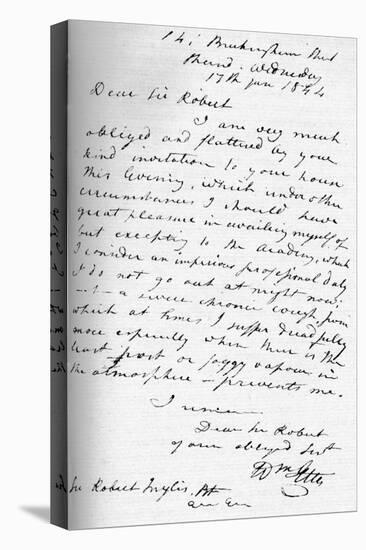 14, Buckingham Street
Strand. Wednesday
17th Jan 1844
Dear Sir Robert
I am very much
obliged and flattered by your
kind invitation to your house
this Evening, which under other
circumstances I should have
great pleasure in availing myself of
but excepting to the Academy, which
I consider an imperious professional duty
I do not go out at night now:
a severe chronic cough, from
which at times I suffer dreadfully
more especially when there is the
least frost or foggy vapour in
the atmosphere – prevents me.
I remain
Dear Sir Robert
your obliged Servt
Wm Etty
Sir Robert Inglis, Bt